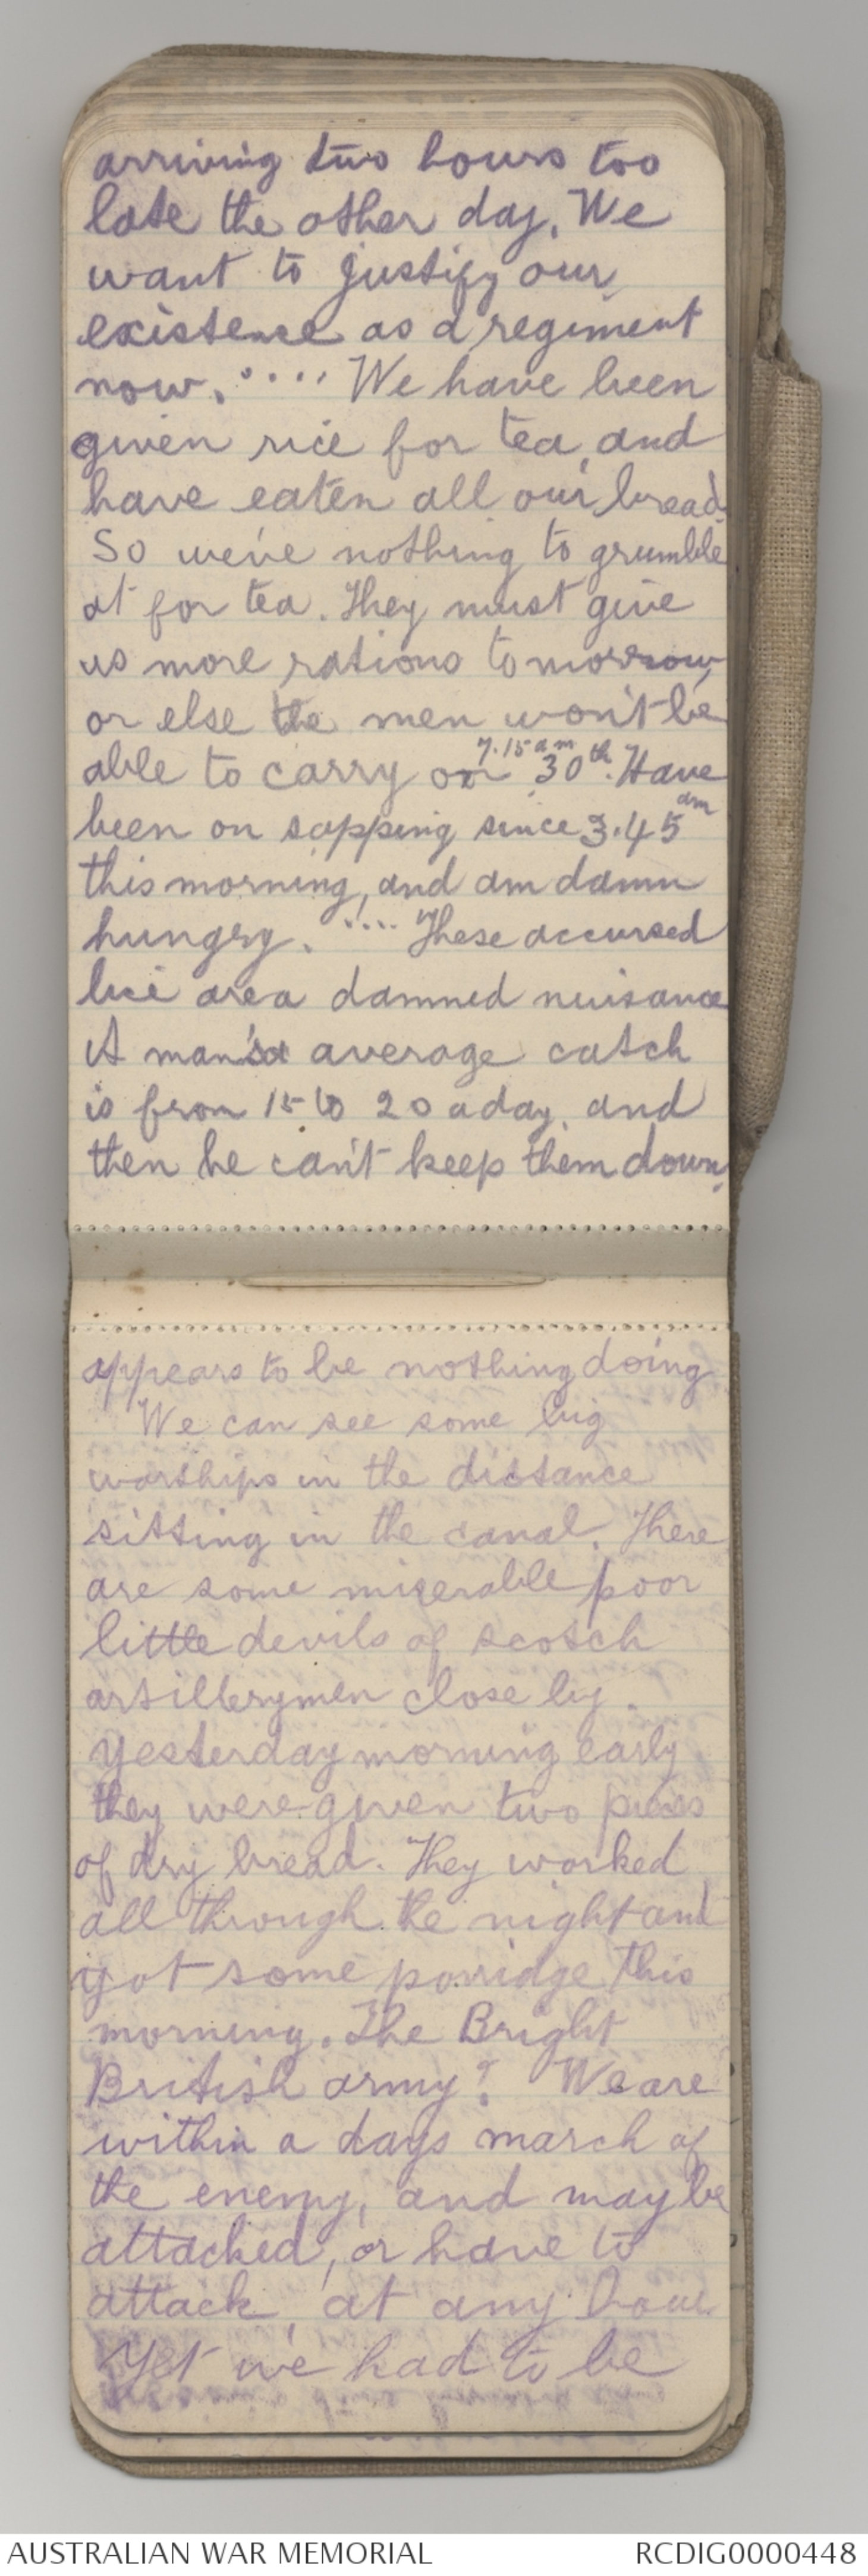 arriving two hours too
late the other day. We
want to justify our
existence as a regiment
now. .... We have been
given rice for tea, and
have eaten all our bread.
So we've nothing to grumble
at for tea. They must give
us more rations tomorrow,
or else the men won't be
able to carry on 7.15 am 30th. Have
been on sapping since 3.45 am
this morning, and am damn
hungry. .... These accursed
lice are a damned nuisance
A man's average catch
is from 15 to 20 a day, and
then he can't keep them down.
appears to be nothing doing
We can see some big
warships in the distance
sitting in the canal. There
are some miserable poor
little devils of scotch
artillerymen close by.
Yesterday morning early
they were given two pieces
of dry bread. They worked
all through the night and
got some porridge this
morning. The Bright
British army! We are
within a days march of
the enemy, and may be
attacked, or have to
attack, at any hour.
Yet we had to be
AUSTRALIAN WAR MEMORIAL
RCDIG0000448